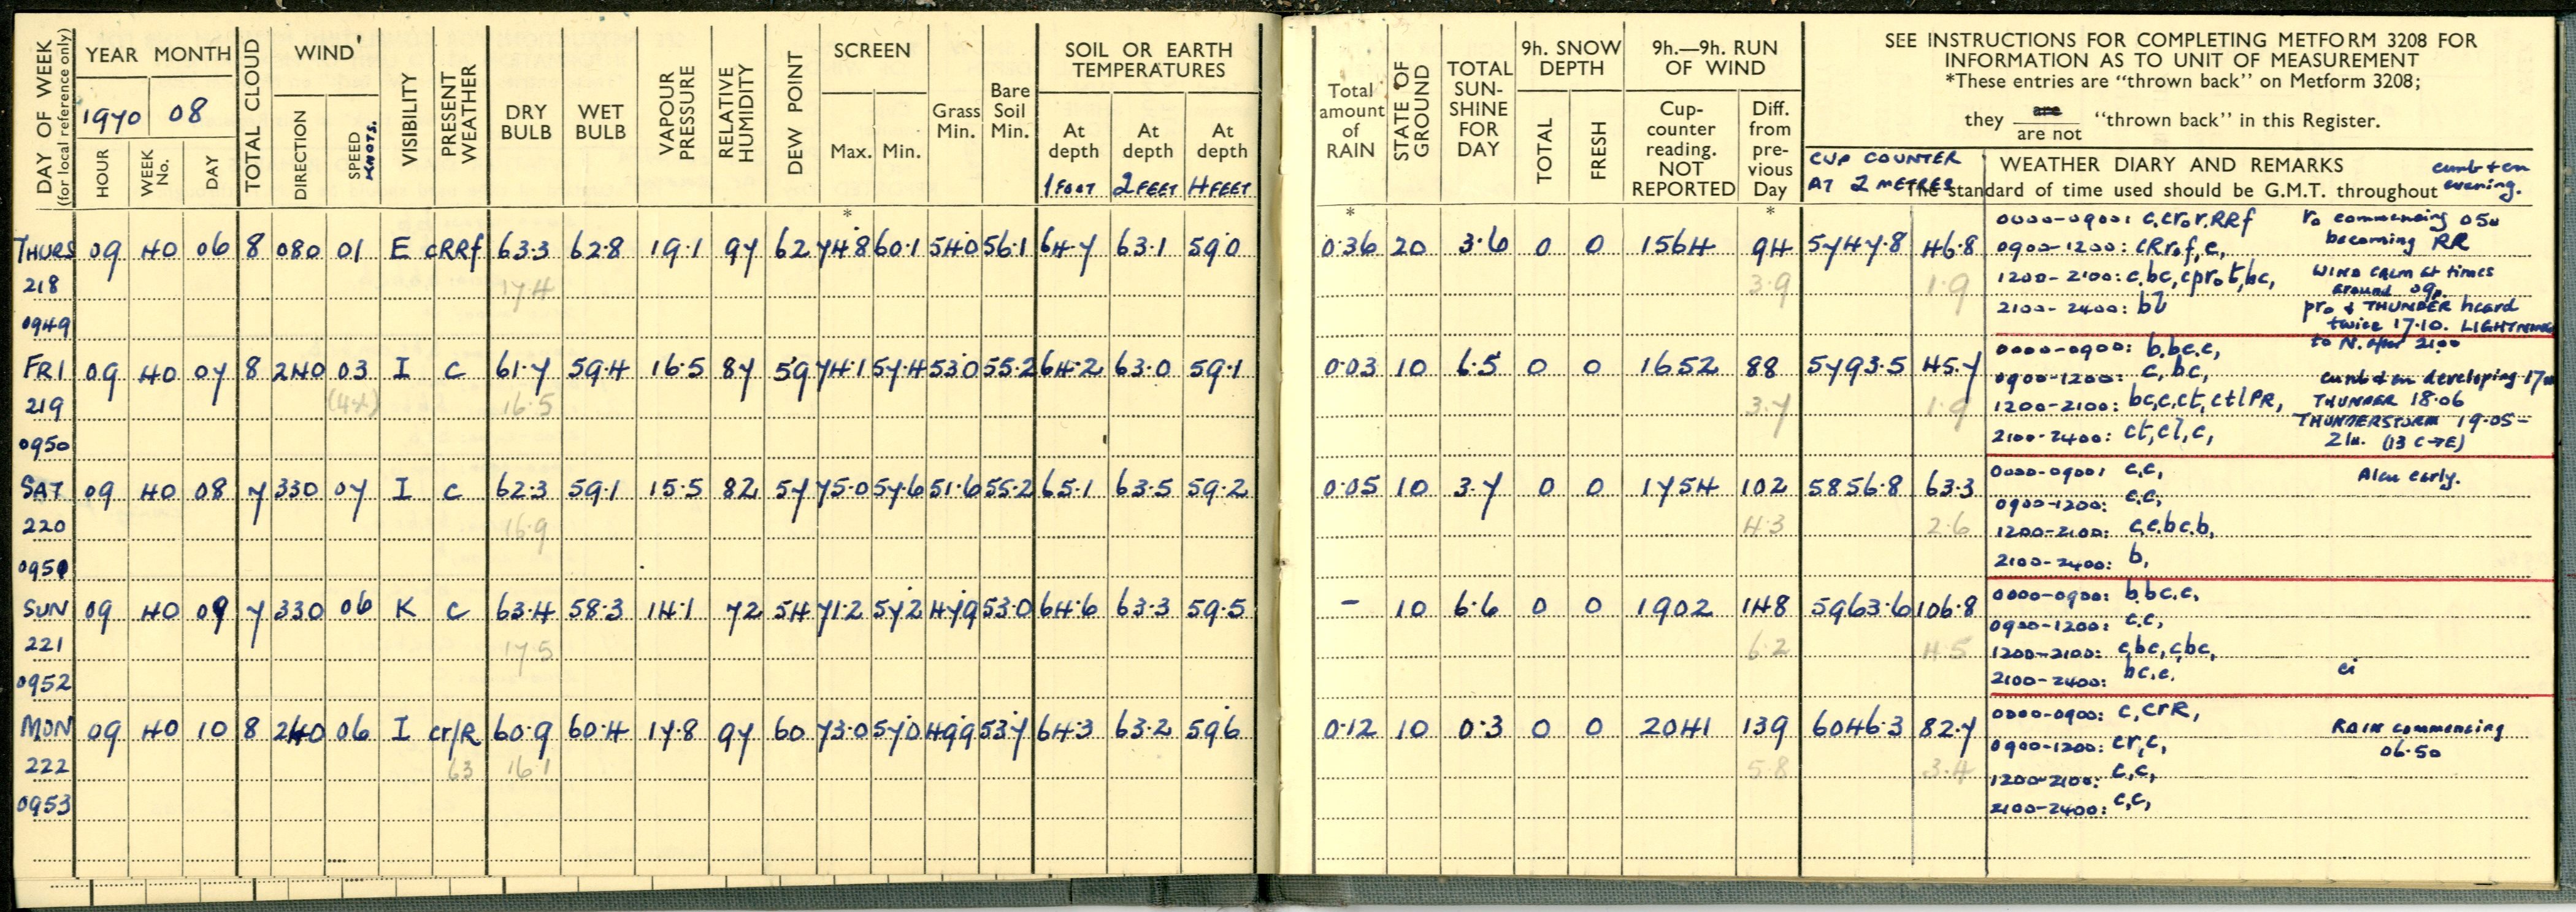 DAY OF WEEK (for local reference only)
YEAR MONTH
1970 08
HOUR WEEK No. DAY
TOTAL CLOUD
WIND
DIRECTION SPEED KNOTS.
VISIBILITY
PRESENT WEATHER
DRY BULB
WET BULB
VAPOUR PRESSURE
RELATIVE HUMIDITY
DEW POINT
SCREEN
Max. Min.
Grass Min.
Bare Soil Min.
SOIL OR EARTH TEMPERATURES
At depth 1 FOOT At depth 2 FEET At depth 4 FEET
Total amount of RAIN
STATE OF GROUND
TOTAL SUN-SHINE FOR DAY
9h. SNOW DEPTH
TOTAL FRESH
9h.—9h. RUN OF WIND
Cup-counter reading. NOT REPORTED
Diff. from pre-vious Day
SEE INSTRUCTIONS FOR COMPLETING METFORM 3208 FOR
INFORMATION AS TO UNIT OF MEASUREMENT
*These entries are “thrown back” on Metform 3208;
they are / are not “thrown back” in this Register.
CUP COUNTER AT 2 METRES
WEATHER DIARY AND REMARKS
The standard of time used should be G.M.T. throughout
cumb + cu evening.
* * *
THURS 09 40 06 8 080 01 E cRRf 63.3 62.8 19.1 97 62 74.8 60.1 54.0 56.1 64.7 63.1 59.0 0.36 20 3.6 0 0 1564 94 5747.8 46.8
218 17.4 3.9 1.9
0949
0000-0900: c,cror.RRf
0900-1200: cRrof,c,
1200-2100: c,bc,cprot,bc,
2100-2400: bl
ro commencing 050
becoming RR
WIND CALM at times
around 09.
pro & THUNDER heard
twice 17.10. LIGHTNING
to N. after 2100
FRI 09 40 07 8 240 03 I c 61.7 59.4 16.5 87 59 74.1 57.4 53.0 55.2 64.2 63.0 59.1 0.03 10 6.5 0 0 1652 88 5793.5 45.7
219 16.5 3.7 1.9
0950
0000-0900: b,bc,c,
0900-1200: c,bc,
1200-2100: bc,c,ct,ctlPR,
2100-2400: ct,cl,c,
cumb & cu developing 17
THUNDER 18.06
THUNDERSTORM 19.05-
21 (13 C→E)
SAT 09 40 08 7 330 07 I c 62.3 59.1 15.5 82 57 75.0 57.6 51.6 55.2 65.1 63.5 59.2 0.05 10 3.7 0 0 1754 102 5856.8 63.3
220 16.9 4.3 2.6
0951
0000-0900: c,c,
0900-1200: c,c,
1200-2100: c,c,bc,b,
2100-2400: b,
early.
SUN 09 40 09 7 330 06 K c 63.4 58.3 14.1 72 54 71.2 57.2 47.9 53.0 64.6 63.3 59.5 - 10 6.6 0 0 1902 148 5963.6 106.8
221 17.5 6.2 4.5
0952
0000-0900: b,bc,c,
0900-1200: c,c,
1200-2100: c,bc,cbc,
2100-2400: bc,c.
ci
MON 09 40 10 8 240 06 I cr/R 60.9 60.4 17.8 97 60 73.0 57.0 49.9 53.7 64.3 63.2 59.6 0.12 10 0.3 0 0 2041 139 6046.3 82.7
222 63 16.1 5.8 3.4
0953
0000-0900: c,crR,
0900-1200: cr,c,
1200-2100: c,c,
2100-2400: c,c,
RAIN commencing
06.50